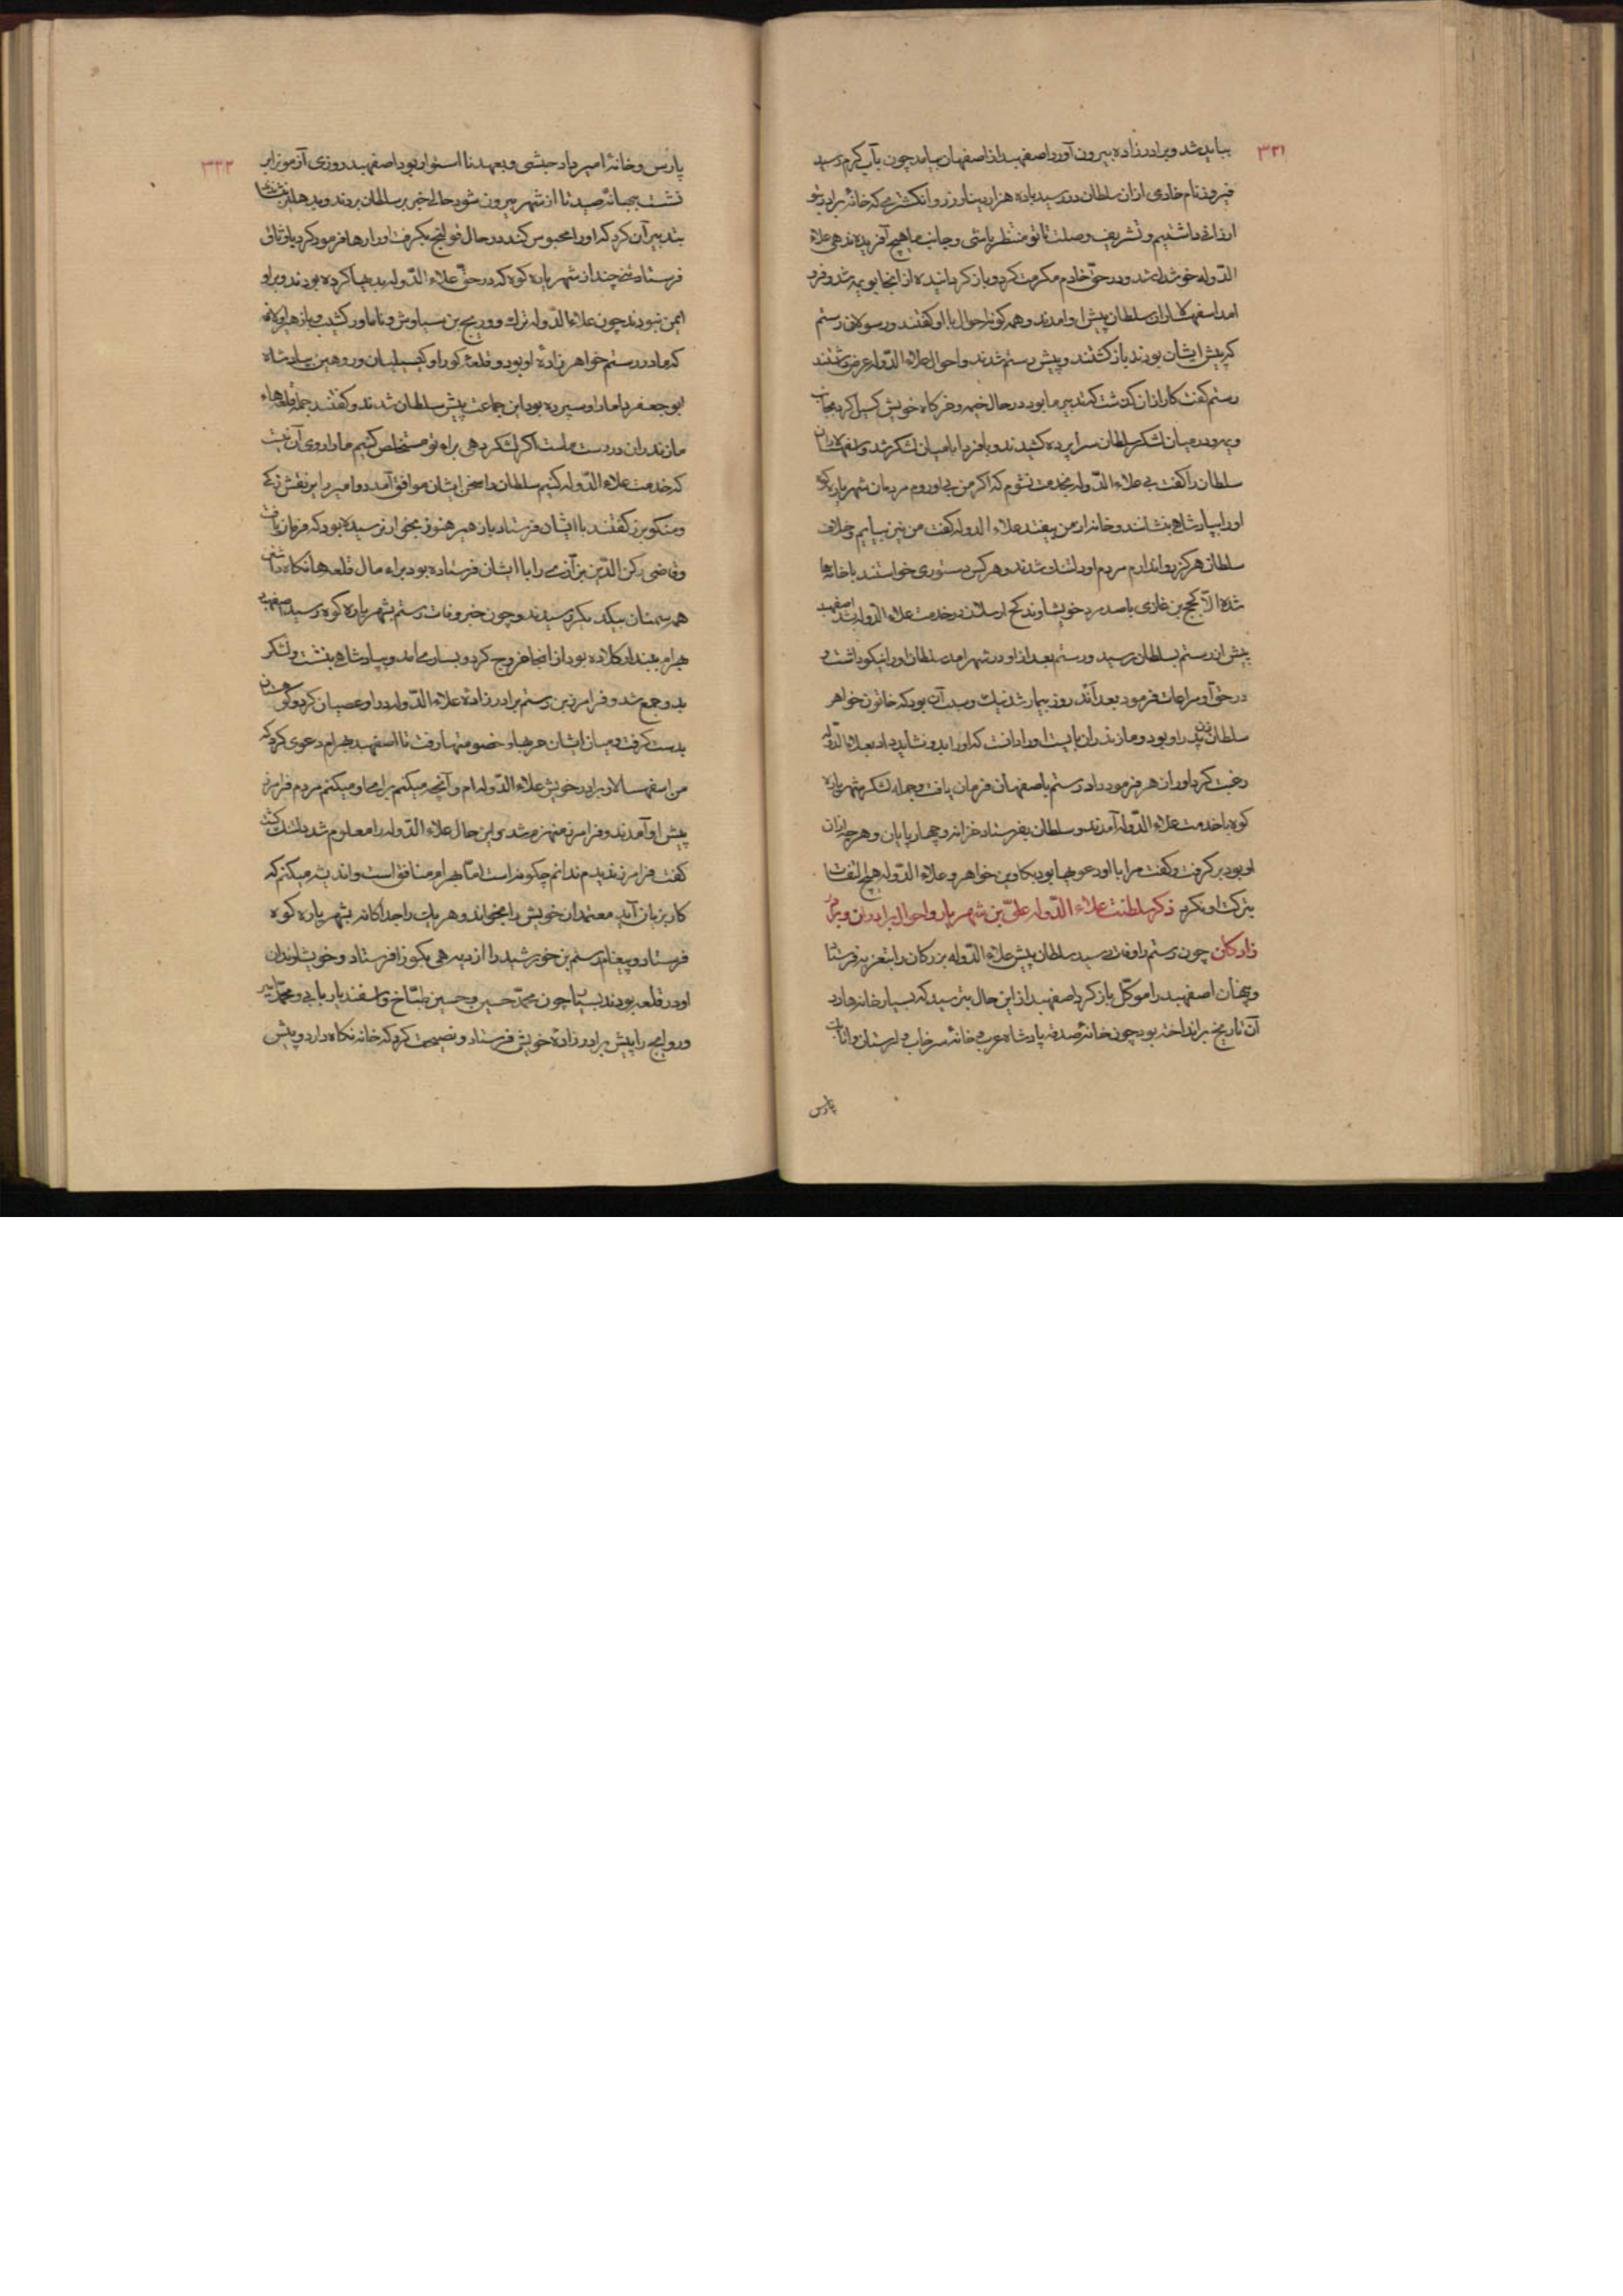 ۳۳۱
بباید شد و برادرزاده بیرون آورد اصفهبد از اصفهان بیامد چون بآب کرم رسید
فیروز نام خادمی ازان سلطان در رسید با ده هزار دینار زر و انکشتری که خانه برادر بتو
ارزانی داشتیم و تشریف و صلت تا تو منتظر باشی و جانب ما هیچ آفریده ندهی علاء
الدّوله خوشدل شد و در حقّ خادم مکرمت کرد و باز کردانیده از انجا بویمه شد و فرود
امد اسفهسلاران سلطان پیش او امدند و همه کونه احوال با او کفتند و رسولان رستم
که پیش ایشان بودند باز کشتند و پیش رستم شدند و احوال علاء الدّوله عرض داشتند
رستم کفت کار ازان کذشت که تدبیر ما بود در حال خیمه و خرکاه خویش کسیل کرد بجانب
ویمه و در میان لشکر سلطان سراپرده کشیدند و بافردا بامیان لشکر شد و اسفهسلاران
سلطان را کفت بی علاء الدّوله بخدمت نشوم که اکر من بی او روم مردمان شهریاره کوه
اورا بپادشاهی بنشانند و خانه از من بیفتد علاء الدوله کفت من نیز بیایم و خلاف
سلطان هرکز روا ندارم مردم او دلتنک شدند و هر کس دستوری خواستند با خانه‌ها
شده الّا کیج بن غازی با صد مرد خویشاوند کج ارسلان در خدمت علاء الدّوله شد اصفهبد
پیش از رستم بسلطان رسید و رستم بعد ازو در شهر امد سلطان اورا نیکو داشت و
در حقّ او مراعات فرمود بعد اند روز بیمار شد نیک و سبب آن بود که خاتون خواهر
سلطان زن پدر او بود و مازندران بایست اورا دانست که اورا بدو نشاید داد بعلاء الدّوله
رغبت کرد اورا زهر فرمود داد رستم باصفهان فرمان یافت و جمله لشکر شهریاره
کوه با خدمت علاء الدّوله آمدند و سلطان بفرستاد خزانه و چهارپایان و هرچه ازان
او بود بر کرفت و کفت مرا با او دعویها بود بکاوین خواهر و علاء الدّوله هیچ التفات
بترکت او نکرد ذکر سلطنت علاء الدّوله علیّ بن شهریار و احوال برادران و برادر
زادکان چون رستم را وفات رسید سلطان پیش علاء الدّوله بزرکان را بتعزیه فرستاد
و پنهان اصفهبد را موکّل باز کرد اصفهبد ازین حال بترسید که بسیار خانه‌ها در
آن تاریخ بر انداخته بود چون خانه صدقه پادشاه عرب و خانه سرخاب و لرستان و اتابک
پارس
۳۳۲
پارس و خانه امیر داد حبشی و بعهد نا استوار بود اصفهبد روزی آزمون را بر
نشست ببهانه صید تا از شهر بیرون شود حالی خبر بر سلطان بردند و بدهلیز بنشاند
بتدبیر آن کرد که اورا محبوس کند در حال قولنج بکرفت اورا رها فرمود کرد با وثاق
فرستاد تنی چند از شهریاره کوه که در حقّ علاء الدّوله بدیها کرده بودند و برو
ایمن نبودند چون علاء الدوله ترک و ورمج بن سیاوش و ناماور کشیب و باز هلولانه
که مادر رستم خواهرزاده او بود و قلعه کوراو کیسیلیان و روهین بپادشاه
ابو جعفر داما راو سپرده بود این جماعت پیش سلطان شدند و کفتند جمله قلعهاء
مازندران در دست ماست اکر لشکر دهی براه تو مستخلص کنیم مارا روی آن نیست
که خدمت علاء الدّوله کنیم سلطان را سخن ایشان موافق آمد دو امیر را بر نقش زکی
و منکوبرز کفتند با ایشان فرستاد یان همیر هنوز بخوار نرسیده بود که فرمان یافت
و قاضی رکن الدّین بن آزمی را با ایشان فرستاده بود براء مال قلعها نکاه داشتن
هم بسمنان بیکدیکر رسیدند و چون خبر وفات رستم بشهریاره کوه رسید اصفهبد
بهرام ببند ار کلاده بود از انجا خروج کرد و بساری امد و بپادشاهی بنشست و لشکر
بدو جمع شد و فرامرز بن رستم برادرزاده علاء الدّوله در او عصیان کرد و کوهستان
بدست کرفت و میان ایشان حربها و خصومتها رفت تا اصفهبد بهرام دعوی کرد که
من اسفهسالار برادر خویش علاء الدّوله ام و آنچه میکنم برای او میکنم مردم فرامرز
پیش او آمدند و فرامرز منهزم شد و این حال علاء الدّوله را معلوم شد دلتنک کشت
کفت فرامرز ندیدم ندانم چکونه است امّا بهرام منافق است و اندیشه میکنم که
کار بزیان آید معتمدان خویش را بخواند و هر یک را جداکانه بشهریاره کوه
فرستاد و پیغام رستم بن خورشید را از دیهی بکوزا فرستاد و خویشاوندان
او در قلعه بودند بسیتا چون محمّد حسین و حسین طبّاخ و اسفندیار بابی و محمّد امیر
و روابج را پیش برادرزاده خویش فرستاد و نصیحت کرد که خانه نکاه دارد و پیش